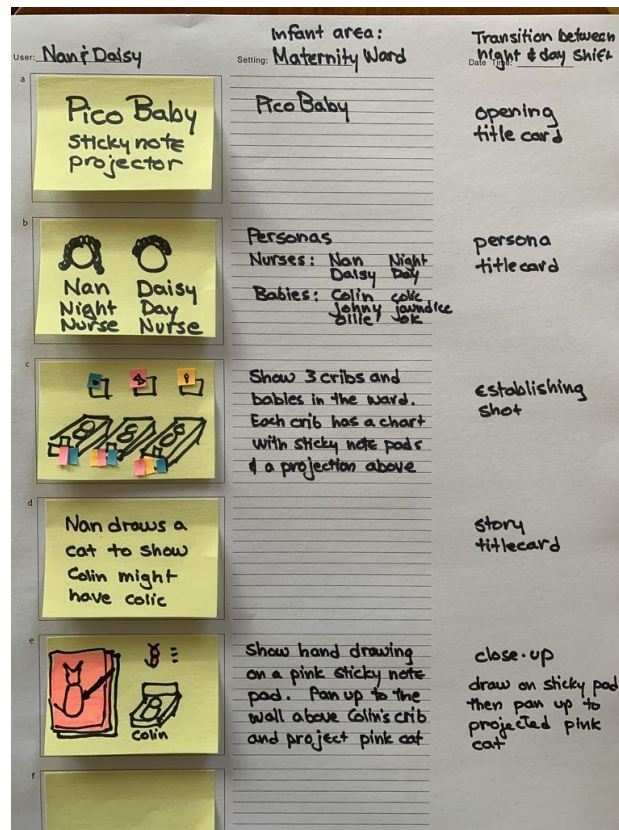 User: Nan & Daisy
Infant area:
Setting: Maternity Ward
Transition between
night & day shift
Date Time:
a
Pico Baby
sticky note
projector
Pico Baby
opening
title card
b
Nan
Night
Nurse
Daisy
Day
Nurse
Personas
Nurses: Nan Night
Daisy Day
Babies: Colin colic
Johny jaundice
Ollie ok
persona
titlecard
c
Show 3 cribs and
babies in the ward.
Each crib has a chart
with sticky note pads
& a projection above
establishing
shot
d
Nan draws a
cat to show
Colin might
have colic
story
titlecard
e
Colin
Show hand drawing
on a pink sticky note
pad. Pan up to the
wall above Colin's crib
and project pink cat
close-up
draw on sticky pad
then pan up to
projected pink
cat
f